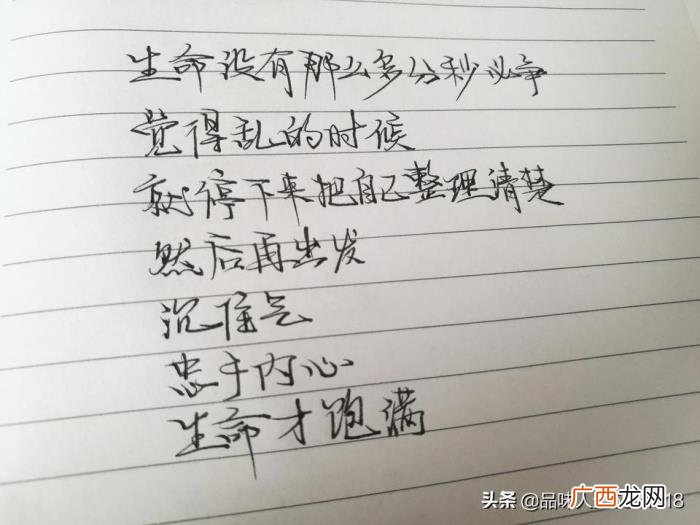 生命没有那么多分秒必争
觉得乱的时候
就停下来把自己整理清楚
然后再出发
沉住气
忠于内心
生命才跑满
头条 @品味人
广西龙网
18